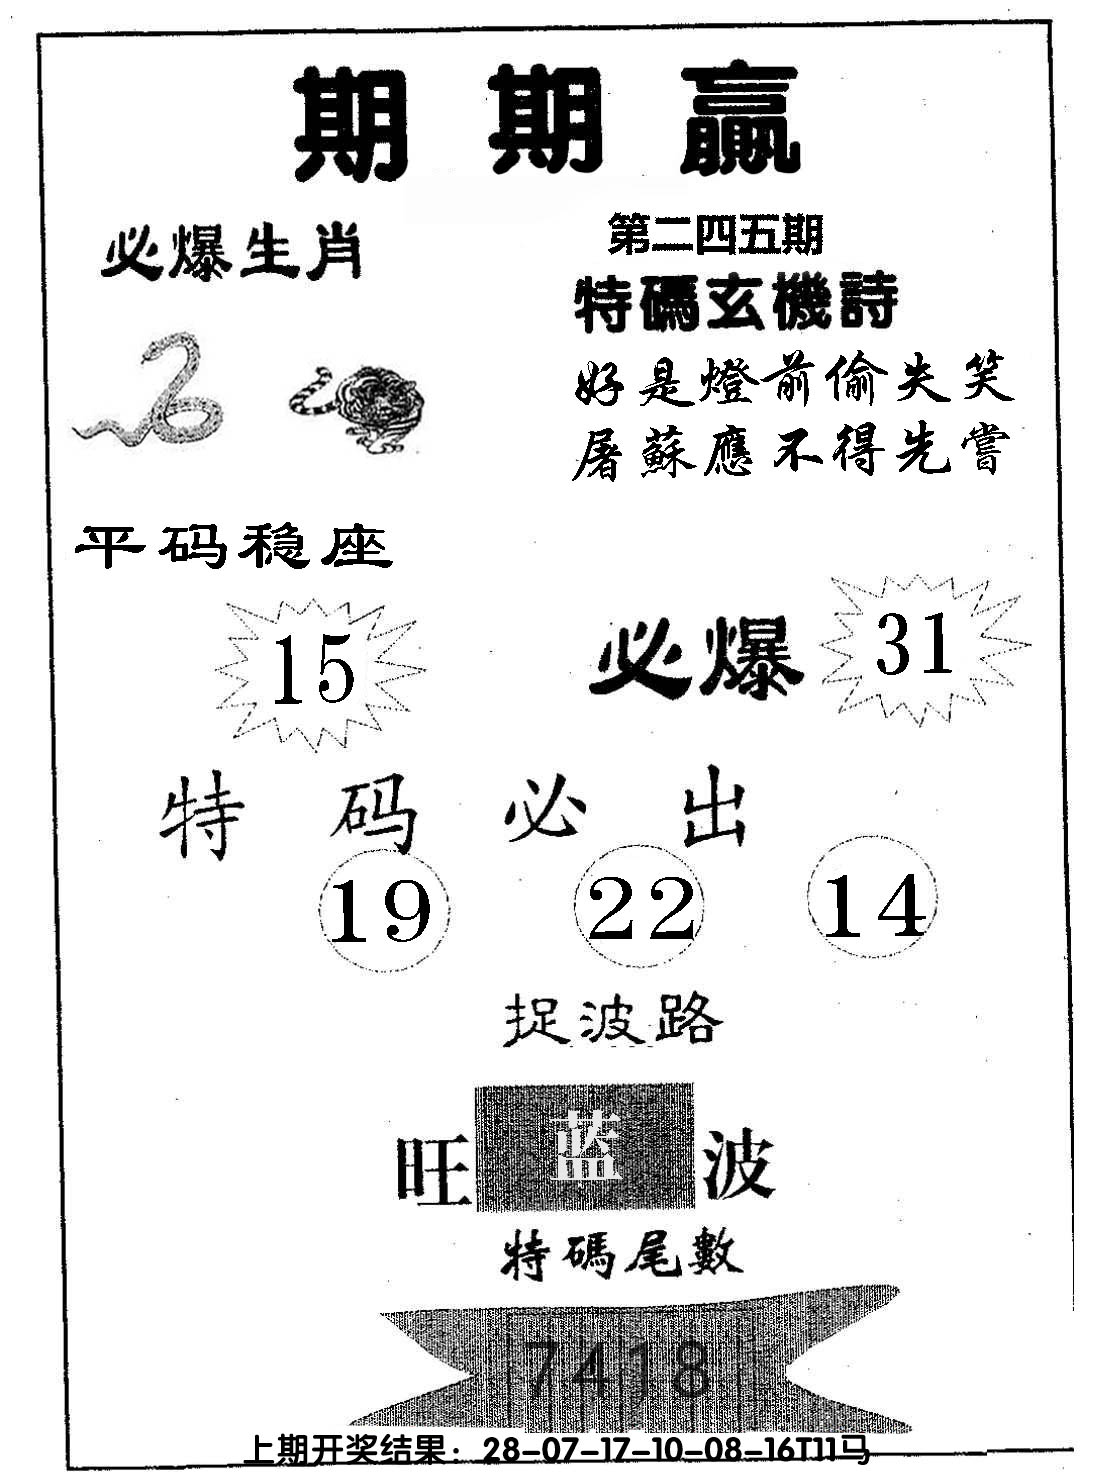 期期赢
必爆生肖
第二四五期
特碼玄機詩
好是燈前偷失笑
屠蘇應不得先嘗
平码稳座
15
必爆 31
特码必出
19 22 14
捉波路
旺蓝波
特碼尾數
7418
上期开奖结果：28-07-17-10-08-16T11马